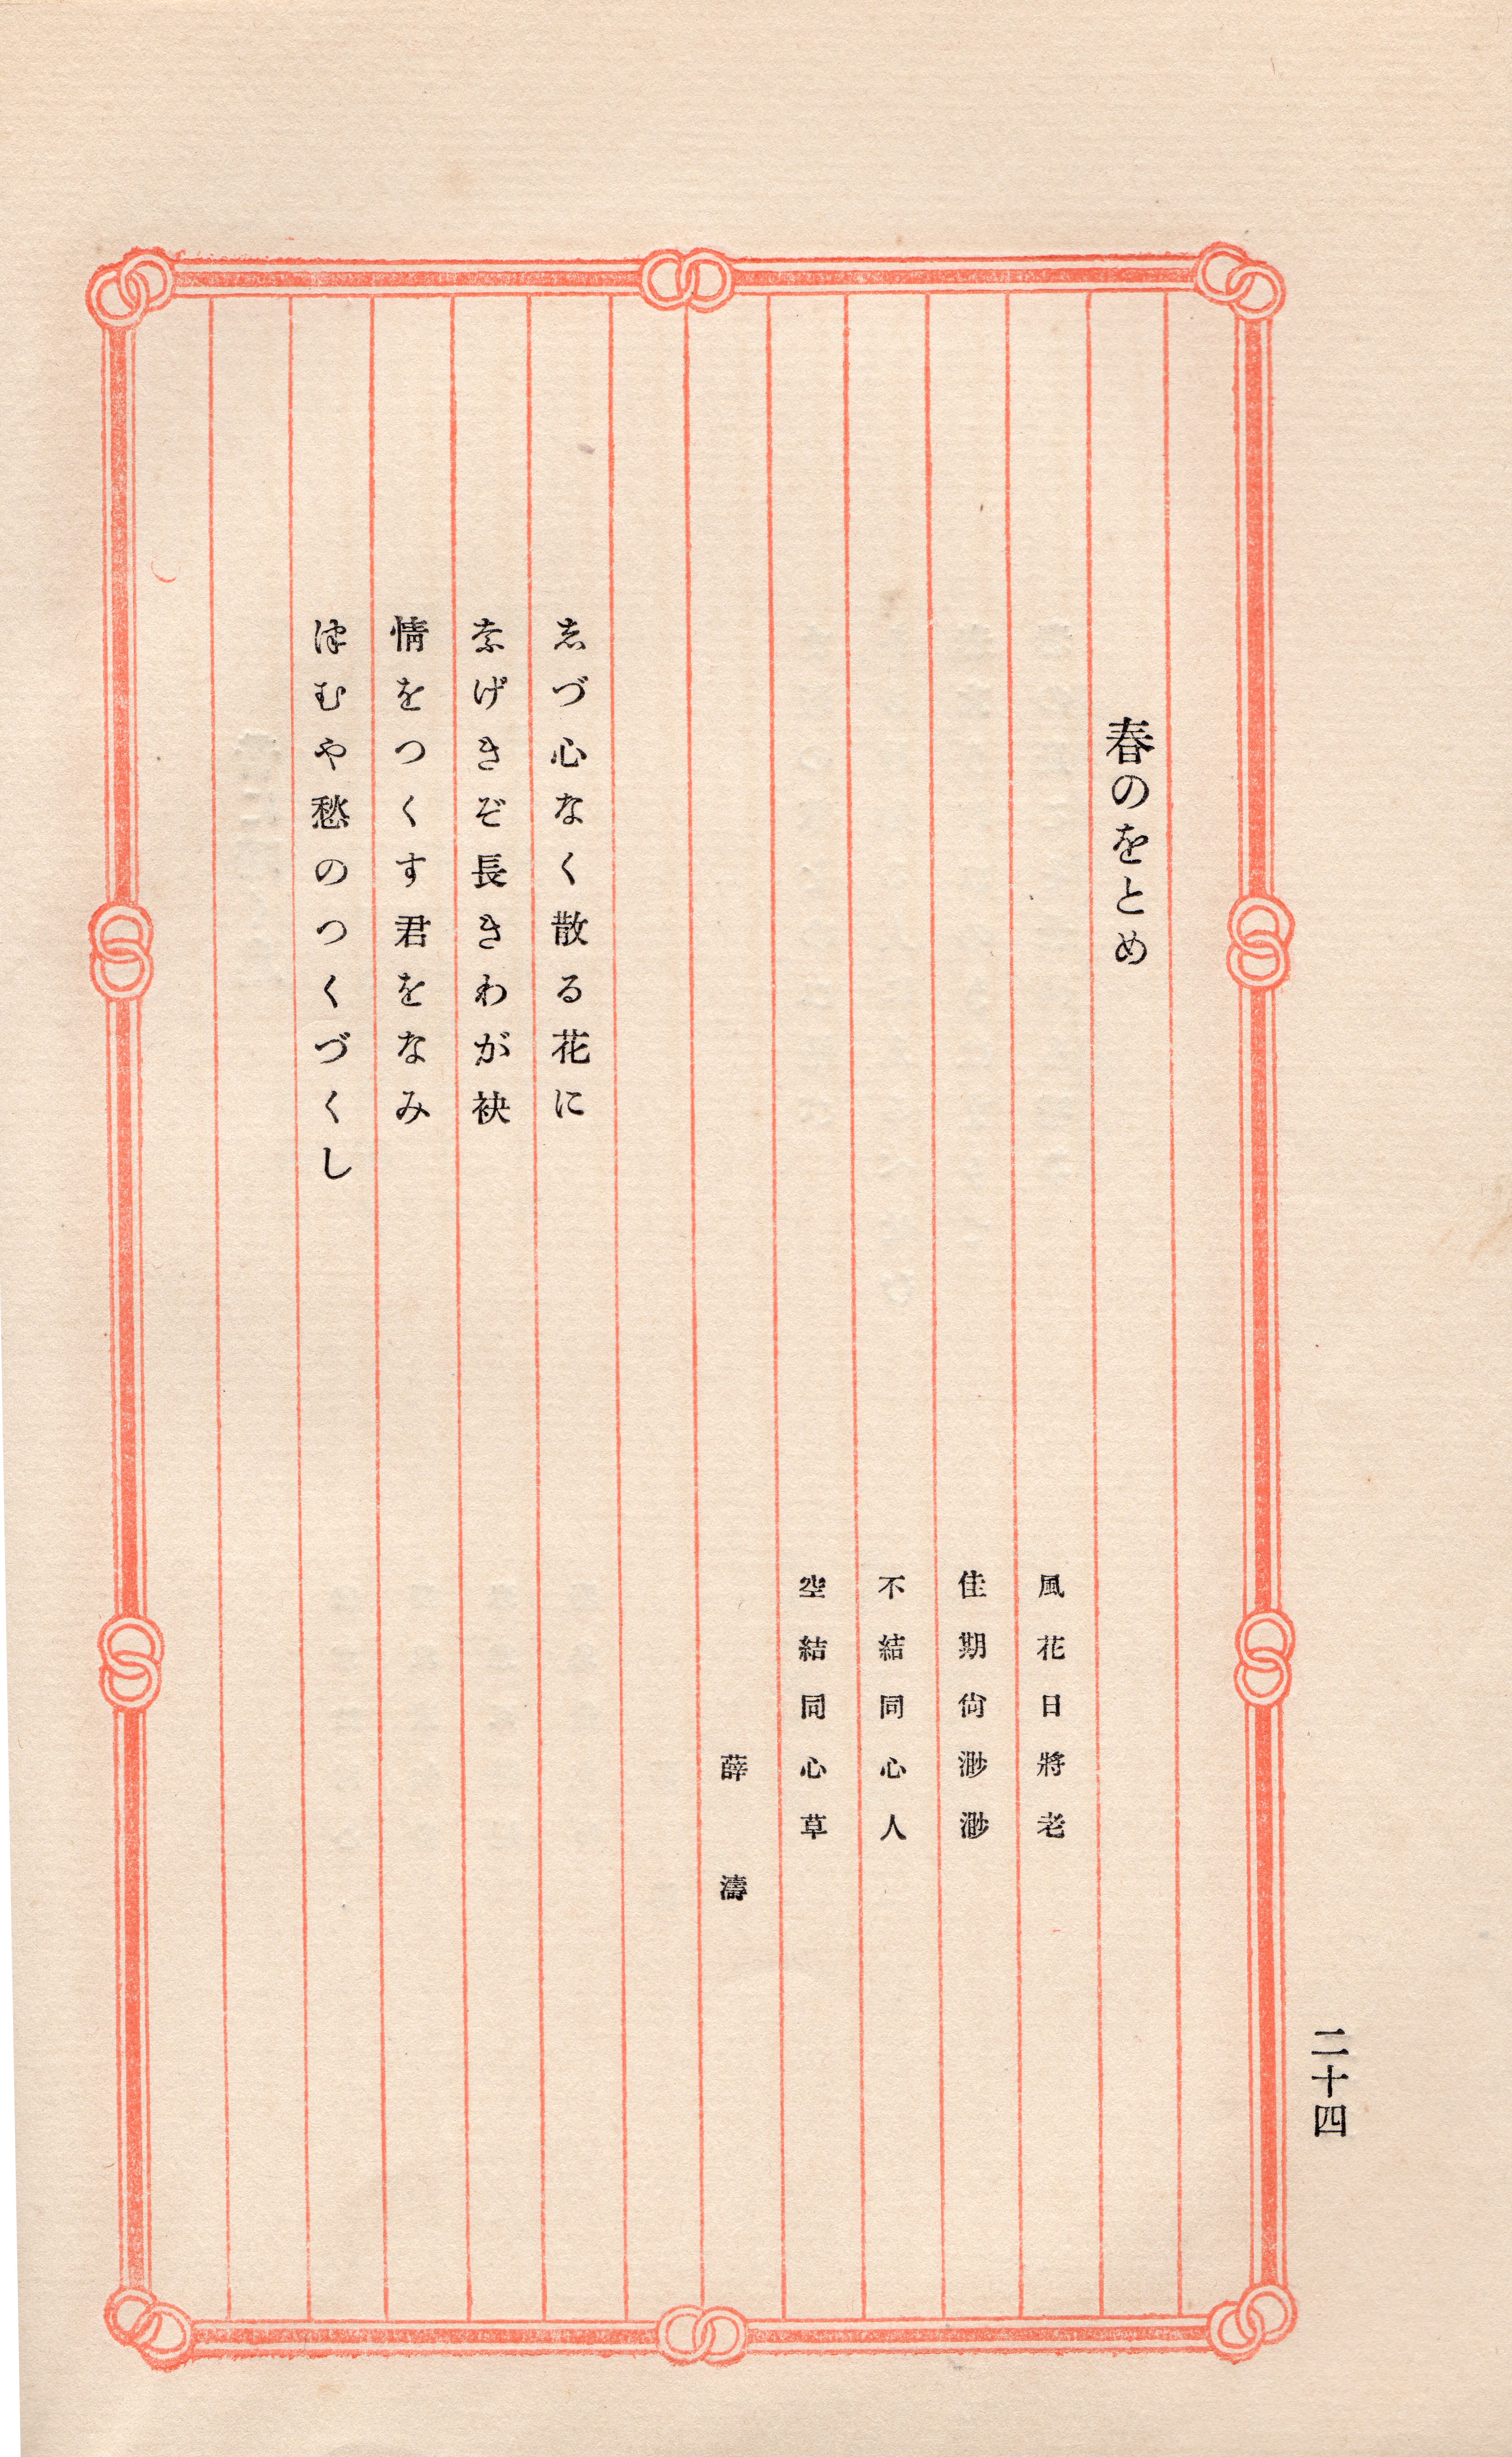 春のをとめ
風花日將老
佳期尙渺渺
不結同心人
空結同心草
薛濤
志づ心なく散る花に
奈げきぞ長きわが袂
情をつくす君をなみ
津むや愁のつくづくし
二十四